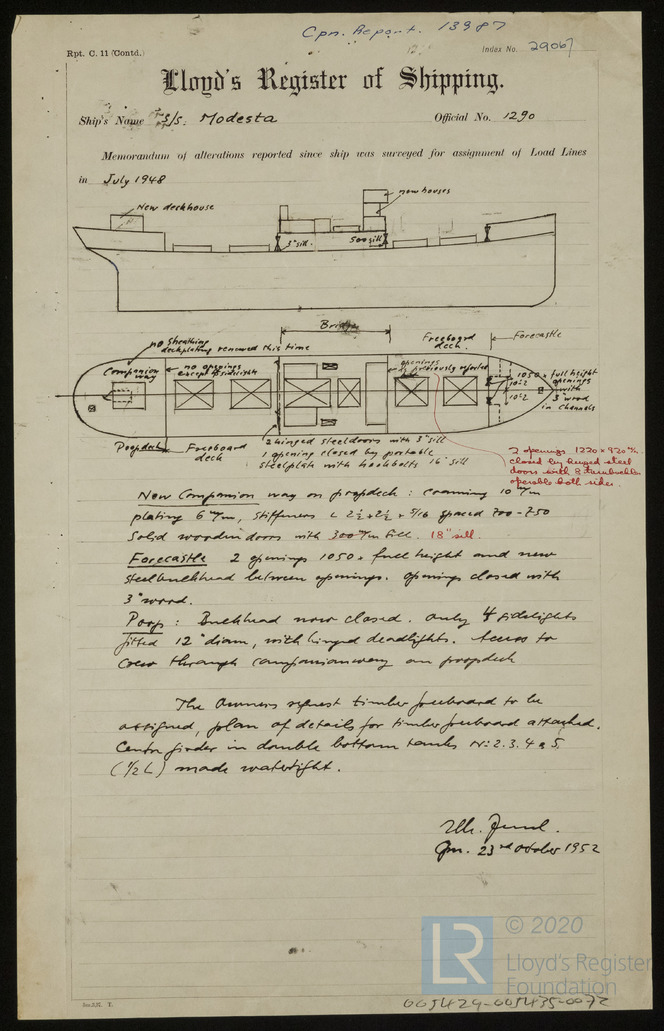 Cpn. Report. 13987
Rpt. C. 11 (Contd.)
Index No. 29067
Lloyd's Register of Shipping.
Ship's Name S/S. Modesta
Official No. 1290
Memorandum of alterations reported since ship was surveyed for assignment of Load Lines
in July 1948
new houses
New deckhouse
3" sill.
500 sill
Bridge
no sheathing
deckplating renewed this time
Freeboard
deck.
Forecastle
Companion
way
no openings
except 4 sidelights
openings
as previously reported
1050 x full height
openings
with
3" wood
in channels
10-2
10-2
Poopdeck
Freeboard
deck
2 hinged steel doors with 3" sill
1 opening closed by portable
steelplate with hookbolts 16" sill
2 openings 1220 x 920 m/m
closed by hinged steel
doors with 8
operable both sides.
New Companion way on poopdeck : coaming 10 m/m
plating 6 m/m, stiffeners L 2½ x 2½ x 5/16 spaced 700-750
Solid wooden doors with 300 m/m sill. 18" sill.
Forecastle 2 openings 1050 x full height and new
steelbulkhead between openings. openings closed with
3" wood.
Poop : Bulkhead now closed. only 4 sidelights
fitted 12" diam, with hinged deadlights. Access to
crew through companionway on poopdeck
The Owners request timber freeboard to be
assigned, plan of details for timber freeboard attached.
Center girder in double bottom tanks No: 2. 3. 4 & 5
(½ L) made watertight.
Cpn. 23rd October 1952
© 2020
LR
Lloyd's Register
Foundation
005429-005435-0072